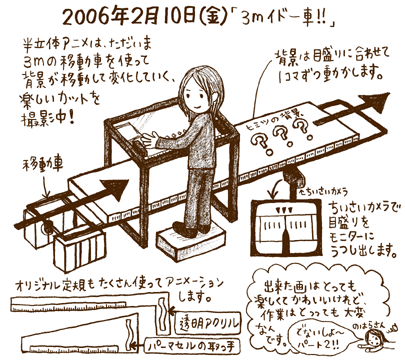 2006年2月10日(金)「3mイドー車!!」
半立体アニメは、ただいま
3mの移動車を使って
背景が移動して変化していく、
楽しいカットを
撮影中!
背景は目盛りに合わせて
1コマずつ動かします。
ヒミツの背景
???
移動車
ちいさいカメラ
ちいさいカメラで
目盛りを
モニターに
うつし出します。
オリジナル定規もたくさん使ってアニメーション
します。
透明アクリル
パーマセルの取っ手
出来た画はとっても
楽しくてかわいいけれど、
作業はとっっても大変
なんです。
のはらさん
でないしょ〜
パート2!!